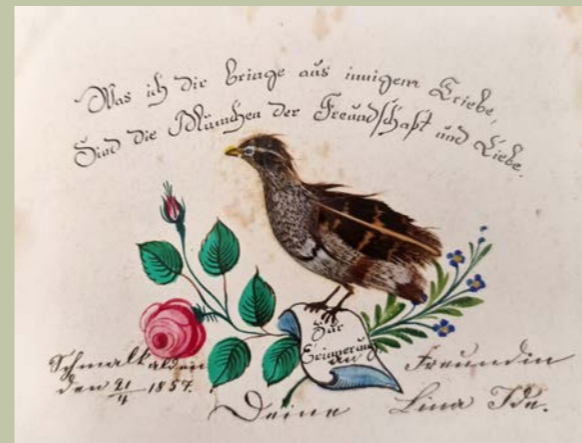 Was ich dir bringe aus innigem Triebe,
Sind die Blümchen der Freundschaft und Liebe.
Zur
Erinnerung
an
Schmalkalden
den 21/4 1857.
Deine Freundin
Lina Ide.